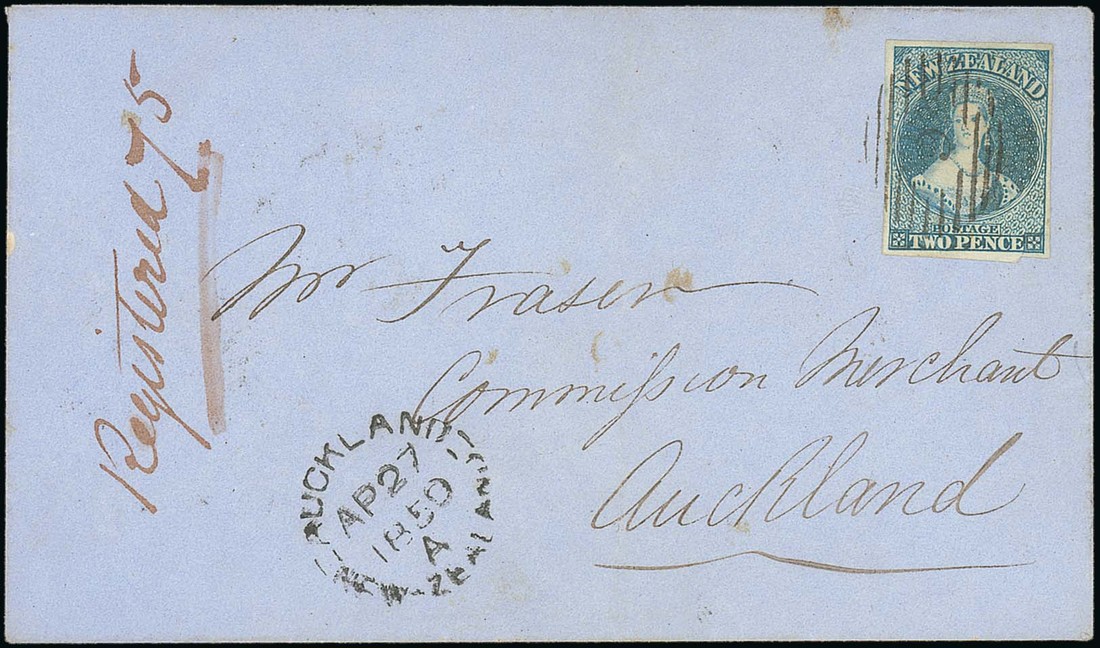 NEW ZEALAND
POSTAGE
TWO PENCE
Registered 75
Mr Fraser
Commission Merchant
Auckland
AUCKLAND
AP 27
1850
A
NEW-ZEALAND